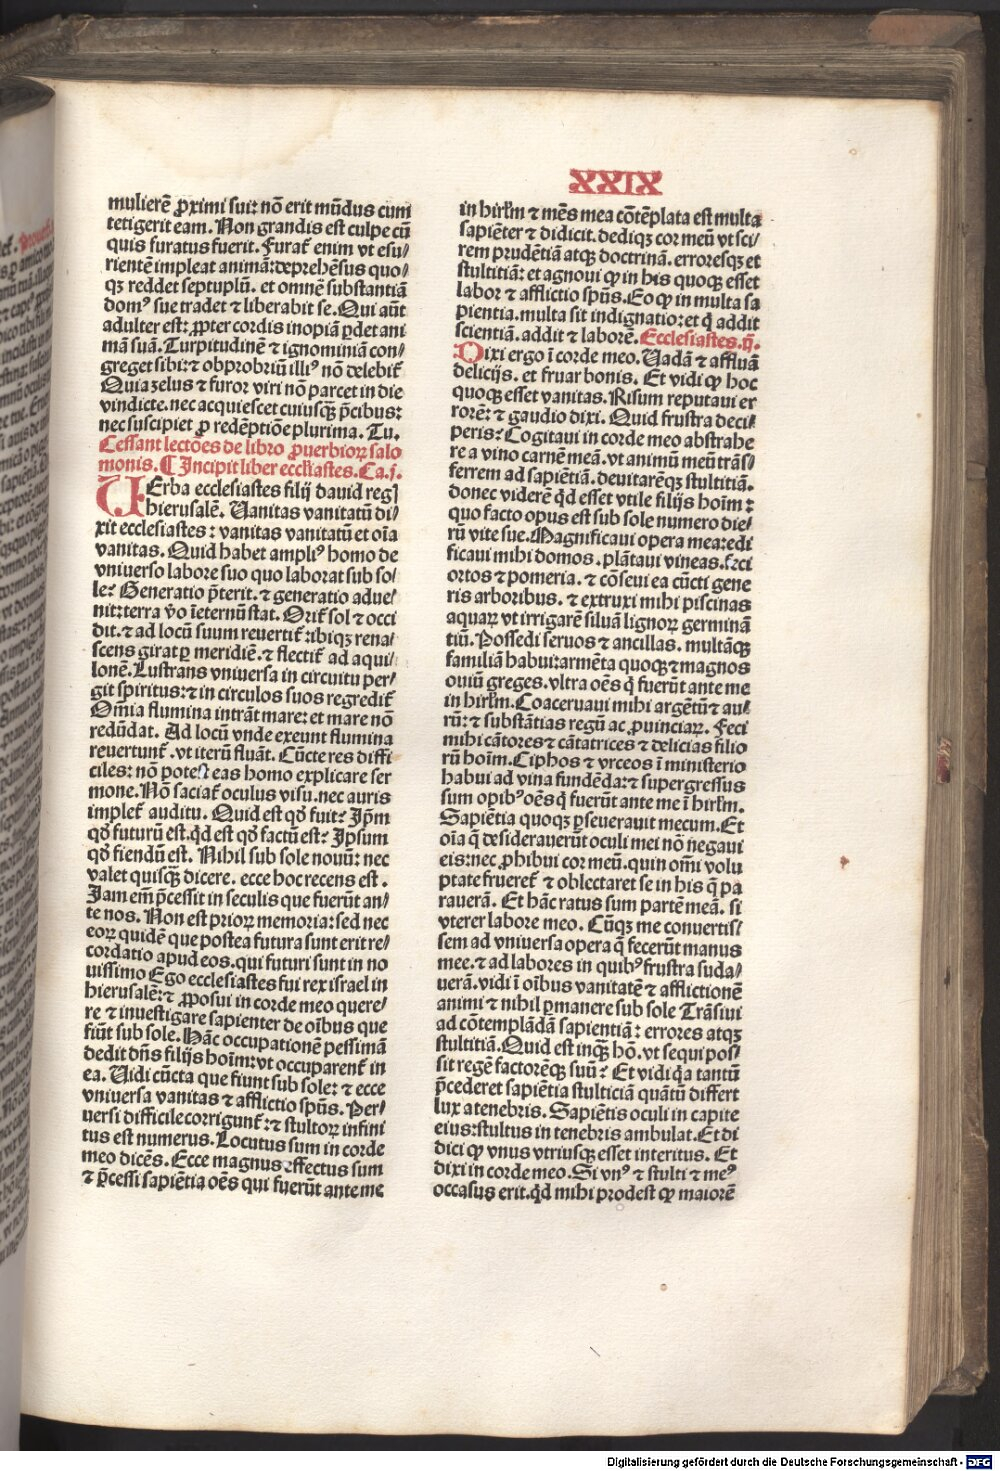 XXIX
mulierē ꝓximi sui: nō erit mūdus cum
tetigerit eam. Non grandis est culpe cū
quis furatus fuerit. Furat᷑ enim vt esu/
rientē impleat animā: deprehēsus quo/
qꝫ reddet septuplū. et omnē substantiā
domꝰ sue tradet ⁊ liberabit se. Qui aūt
adulter est: ꝓpter cordis inopiā ꝑdet ani
mā suā. Turpitudinē ⁊ ignominiā con/
greget sibi: ⁊ obprobriū illiꝰ nō delebit᷑
Quia zelus ⁊ furor viri nō parcet in die
vindicte. nec acquiescet cuiusqꝫ p̄cibus:
nec suscipiet ꝓ redēptiōe plurima. Tu.
Cessant lectōes de libro ꝓuerbioꝝ salo
monis. ¶ Incipit liber eccl'iastes. Ca. j.
VErba ecclesiastes filij dauid reg
hierusalē. Uanitas vanitatū di/
xit ecclesiastes: vanitas vanitatū et oīa
vanitas. Quid habet ampliꝰ homo de
vniuerso labore suo quo laborat sub so/
le? Generatio p̄terit. ⁊ generatio adue/
nit: terra v̄o īeternū stat. Orit᷑ sol ⁊ occi
dit. ⁊ ad locū suum reuertit᷑: ibiqꝫ rena/
scens girat ꝑ meridiē. ⁊ flectit᷑ ad aqui/
lonē. Lustrans vniuersa in circuitu per/
git spiritus: ⁊ in circulos suos regredit᷑
Omia flumina intrāt mare: et mare nō
redūdat. Ad locū vnde exeunt flumina
reuertunt᷑. vt iterū fluāt. Cūcte res diffi
ciles: nō potest eas homo explicare ser
mone. Nō saciat᷑ oculus visu. nec auris
implet᷑ auditu. Quid est qđ fuit? Ip̄m
qđ futurū est. qd est qđ factū est? Ip̄sum
qđ fiendū est. Nihil sub sole nouū: nec
valet quisqꝫ dicere. ecce hoc recens est.
Jam em̄ p̄cessit in seculis que fuerūt an/
te nos. Non est prioꝝ memoria: sed nec
eoꝝ quidē que postea futura sunt erit re/
cordatio apud eos. qui futuri sunt in no
uissimo Ego ecclesiastes fui rex israel in
hierusalē: ⁊ ꝓposui in corde meo quere/
re ⁊ inuestigare sapienter de oībus que
fiūt sub sole. Hāc occupationē pessimā
dedit dn̄s filijs hoīm: vt occuparent᷑ in
ea. Uidi cūcta que fiunt sub sole: ⁊ ecce
vniuersa vanitas ⁊ afflictio sp̄us. Per/
uersi difficile corrigunt᷑: ⁊ stultoꝝ infini
tus est numerus. Locutus sum in corde
meo dicēs. Ecce magnus effectus sum
⁊ p̄cessi sapiētia oēs qui fuerūt ante me
in hirl'm ⁊ mēs mea cōtēplata est multa
sapiēter ⁊ didicit. dediqꝫ cor meū vt sci/
rem prudētiā atqꝫ doctrinā. erroresqꝫ et
stultitiā: et agnoui ꝙ in his quoqꝫ esset
labor ⁊ afflictio sp̄us. Eo ꝙ in multa sa
pientia. multa sit indignatio: et q̄ addit
scientiā. addit ⁊ labore. Ecclesiastes. ij.
Dixi ergo ī corde meo. Uadā ⁊ affluā
delicijs. et fruar bonis. Et vidi ꝙ hoc
quoqꝫ esset vanitas. Risum reputaui er
rorē: ⁊ gaudio dixi. Quid frustra deci/
peris? Cogitaui in corde meo abstrahe
re a vino carnē meā. vt animū meū trās/
ferrem ad sapiētiā. deuitarēqꝫ stultitiā.
donec viderē qd esset vtile filijs hoīm:
quo facto opus est sub sole numero die/
rū vite sue. Magnificaui opera mea: edi
ficaui mihi domos. plātaui vineas. feci
ortos ⁊ pomeria. ⁊ cōseui ea cūcti gene
ris arboribus. ⁊ extruxi mihi piscinas
aquaꝝ vt irrigarē siluā lignoꝝ germinā
tiū. Possedi seruos ⁊ ancillas. multāqꝫ
familiā habui: armēta quoqꝫ ⁊ magnos
ouiū greges. vltra oēs q̄ fuerūt ante me
in hirl'm. Coaceruaui mihi argētū ⁊ au/
rū: ⁊ substātias regū ac ꝓuinciaꝝ. Feci
mihi cātores ⁊ cātatrices ⁊ delicias filio
rū hoīm. Ciphos ⁊ vrceos ī ministerio
habui ad vina fundēda: ⁊ supergressus
sum opibꝰ oēs q̄ fuerūt ante me ī hirl'm.
Sapiētia quoqꝫ ꝑseuerauit mecum. Et
oīa q̄ desiderauerūt oculi mei nō negaui
eis: nec ꝓhibui cor meū. quin om̄i volu
ptate frueret᷑ ⁊ oblectaret se in his q̄ pa
rauerā. Et hāc ratus sum partē meā. si
vterer labore meo. Cūqꝫ me conuertis/
sem ad vniuersa opera q̄ fecerūt manus
mee. ⁊ ad labores in quibꝰ frustra suda/
uerā. vidi ī oībus vanitatē ⁊ afflictionē
animi ⁊ nihil ꝑmanere sub sole Trāsiui
ad cōtemplādā sapientiā: errores atqꝫ
stultitiā. Quid est inqꝫ hō. vt sequi pos/
sit regē factorēqꝫ suū? Et vidi q̄a tantū
p̄cederet sapiētia stulticiā quātū differt
lux a tenebris. Sapiētis oculi in capite
eius: stultus in tenebris ambulat. Et di
dici ꝙ vnus vtriusqꝫ esset interitus. Et
dixi in corde meo. Si vnꝰ ⁊ stulti ⁊ meꝰ
occasus erit. qd mihi prodest ꝙ maiorē
Digitalisierung gefördert durch die Deutsche Forschungsgemeinschaft - DFG